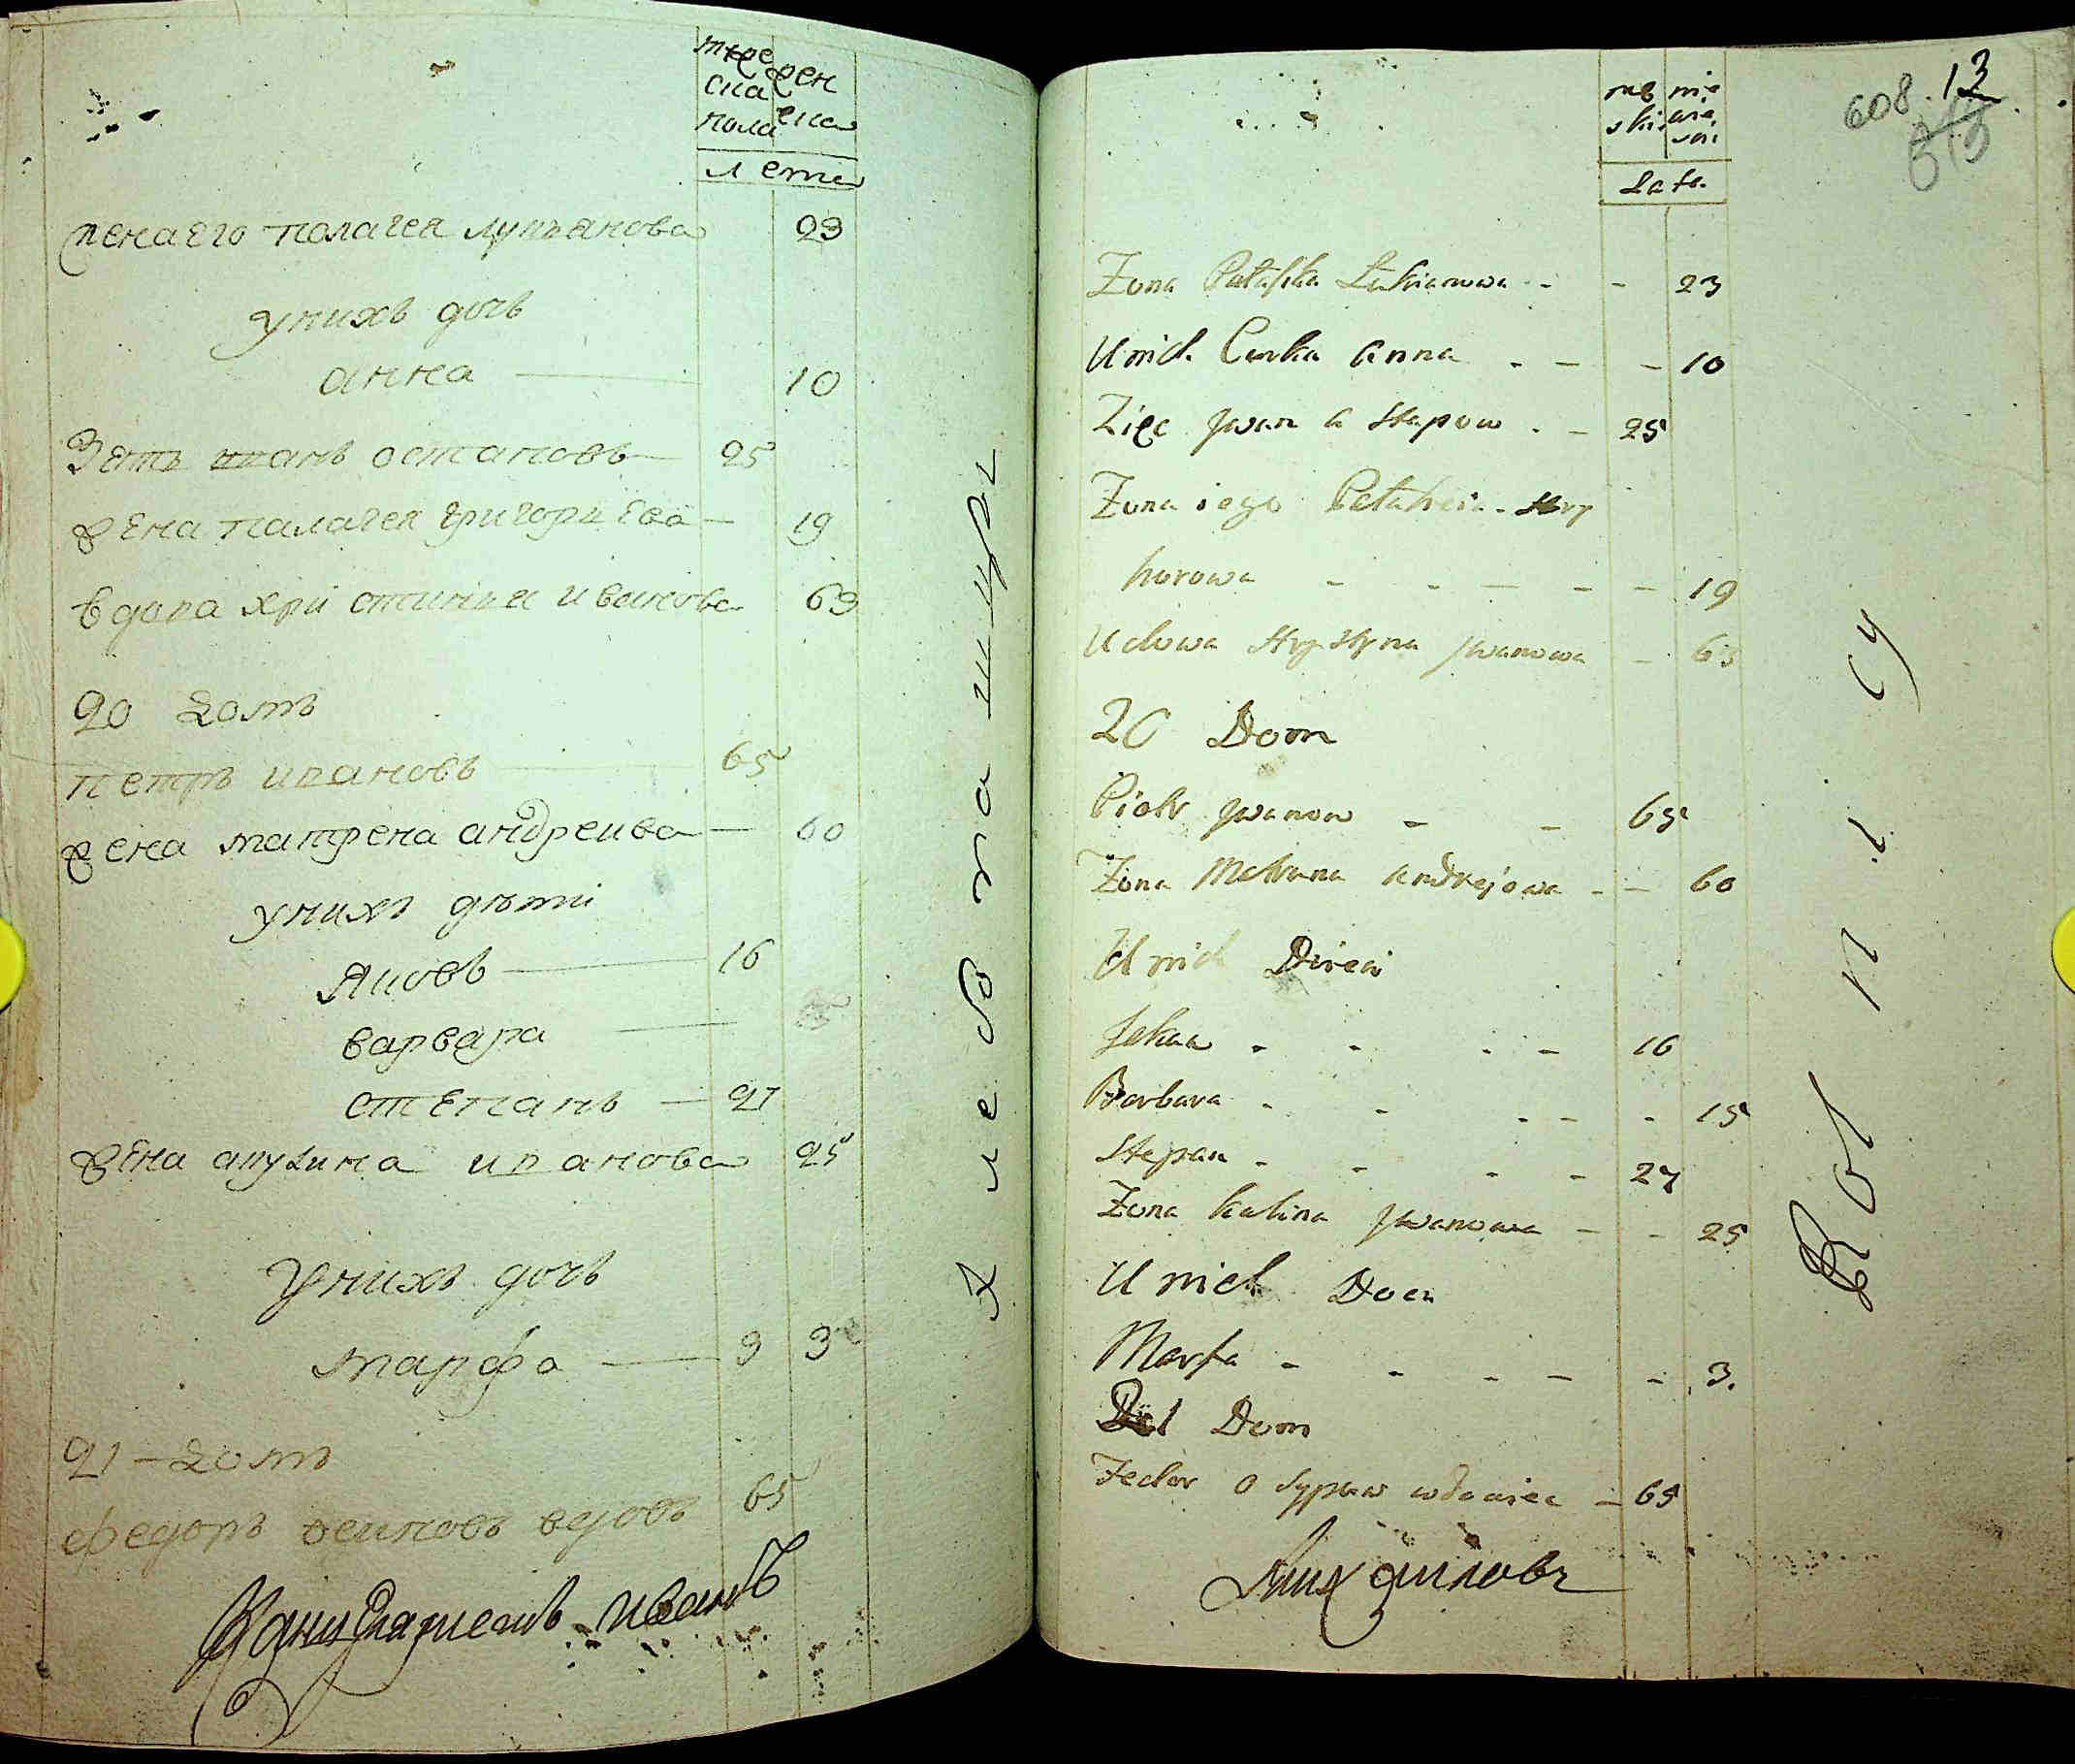 мужеска пола
женска
лета
жена его палагея лукьянова 23
у нихъ дочь
анна 10
Зять иванъ остаповъ 25
жена палагея григориева 19
вдова христиния иванова 63
20 домъ
петръ ивановъ 65
жена матрена андреива 60
у нихъ дѣти
яковъ 16
варвара
степанъ 27
жена акулина иванова 25
У нихъ дочь
марфа 3 3
21 - домъ
федоръ осиповъ вдовъ 65
иванъ
608. 13
Late.
Zona Palahka Lukianowa - - 23
U nich Curka Anna - - - 10
Zięc Jwan Astapow - - 25
Zona iego Palaheia Hry
horowa - - - - - 19
Udowa Hrystyna Jwanowa - 63
20 Dom
Piotr Jwanow - - 65
Zona Matruna Andrejowa - - 60
U nich Dieci
Jakaw - - - - 16
Barbara - - - - - 15
Stepan - - - - 27
Zona Kulina Jwanowa - - 25
U nich Doci
Marfa - - - - - 3.
21 Dom
Fedor Osypow wdowiec - 65